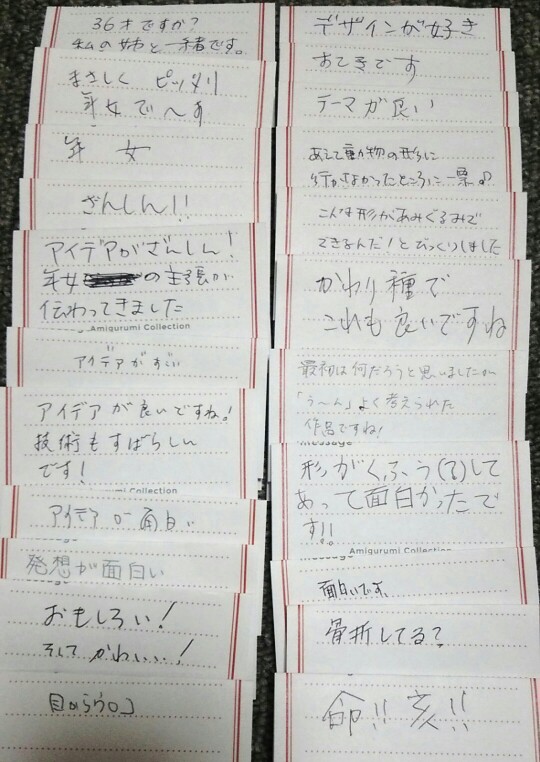 36才ですか?
私の姉と一緒です。
まさしく ピッタリ
年女で〜す
年 女
ざんしん!!
アイデアがざんしん!
年女 の主張が
伝わってきました
Amigurumi Collection
アイデアがすごい
アイデアが良いですね。!
技術もすばらしい
です!
umi Collection
アイデアが面白い
発想が面白い
おもしろい!
そして かわいい!
目からウロコ
デザインが好き
おてきです
テーマが良い
あえて動物の形に
行かなかったところに一票。
こんな形があみぐるみで
できるんだ!とびっくりしました
かわり種で
これも良いですね
最初は何だろうと思いましたが
「う〜ん」よく考えられた
作品ですね!
message
形がくふう(を)して
あって面白かったで
す!!
Amigurumi Collection
面白いです。
骨折してる?
命!! 亥!!